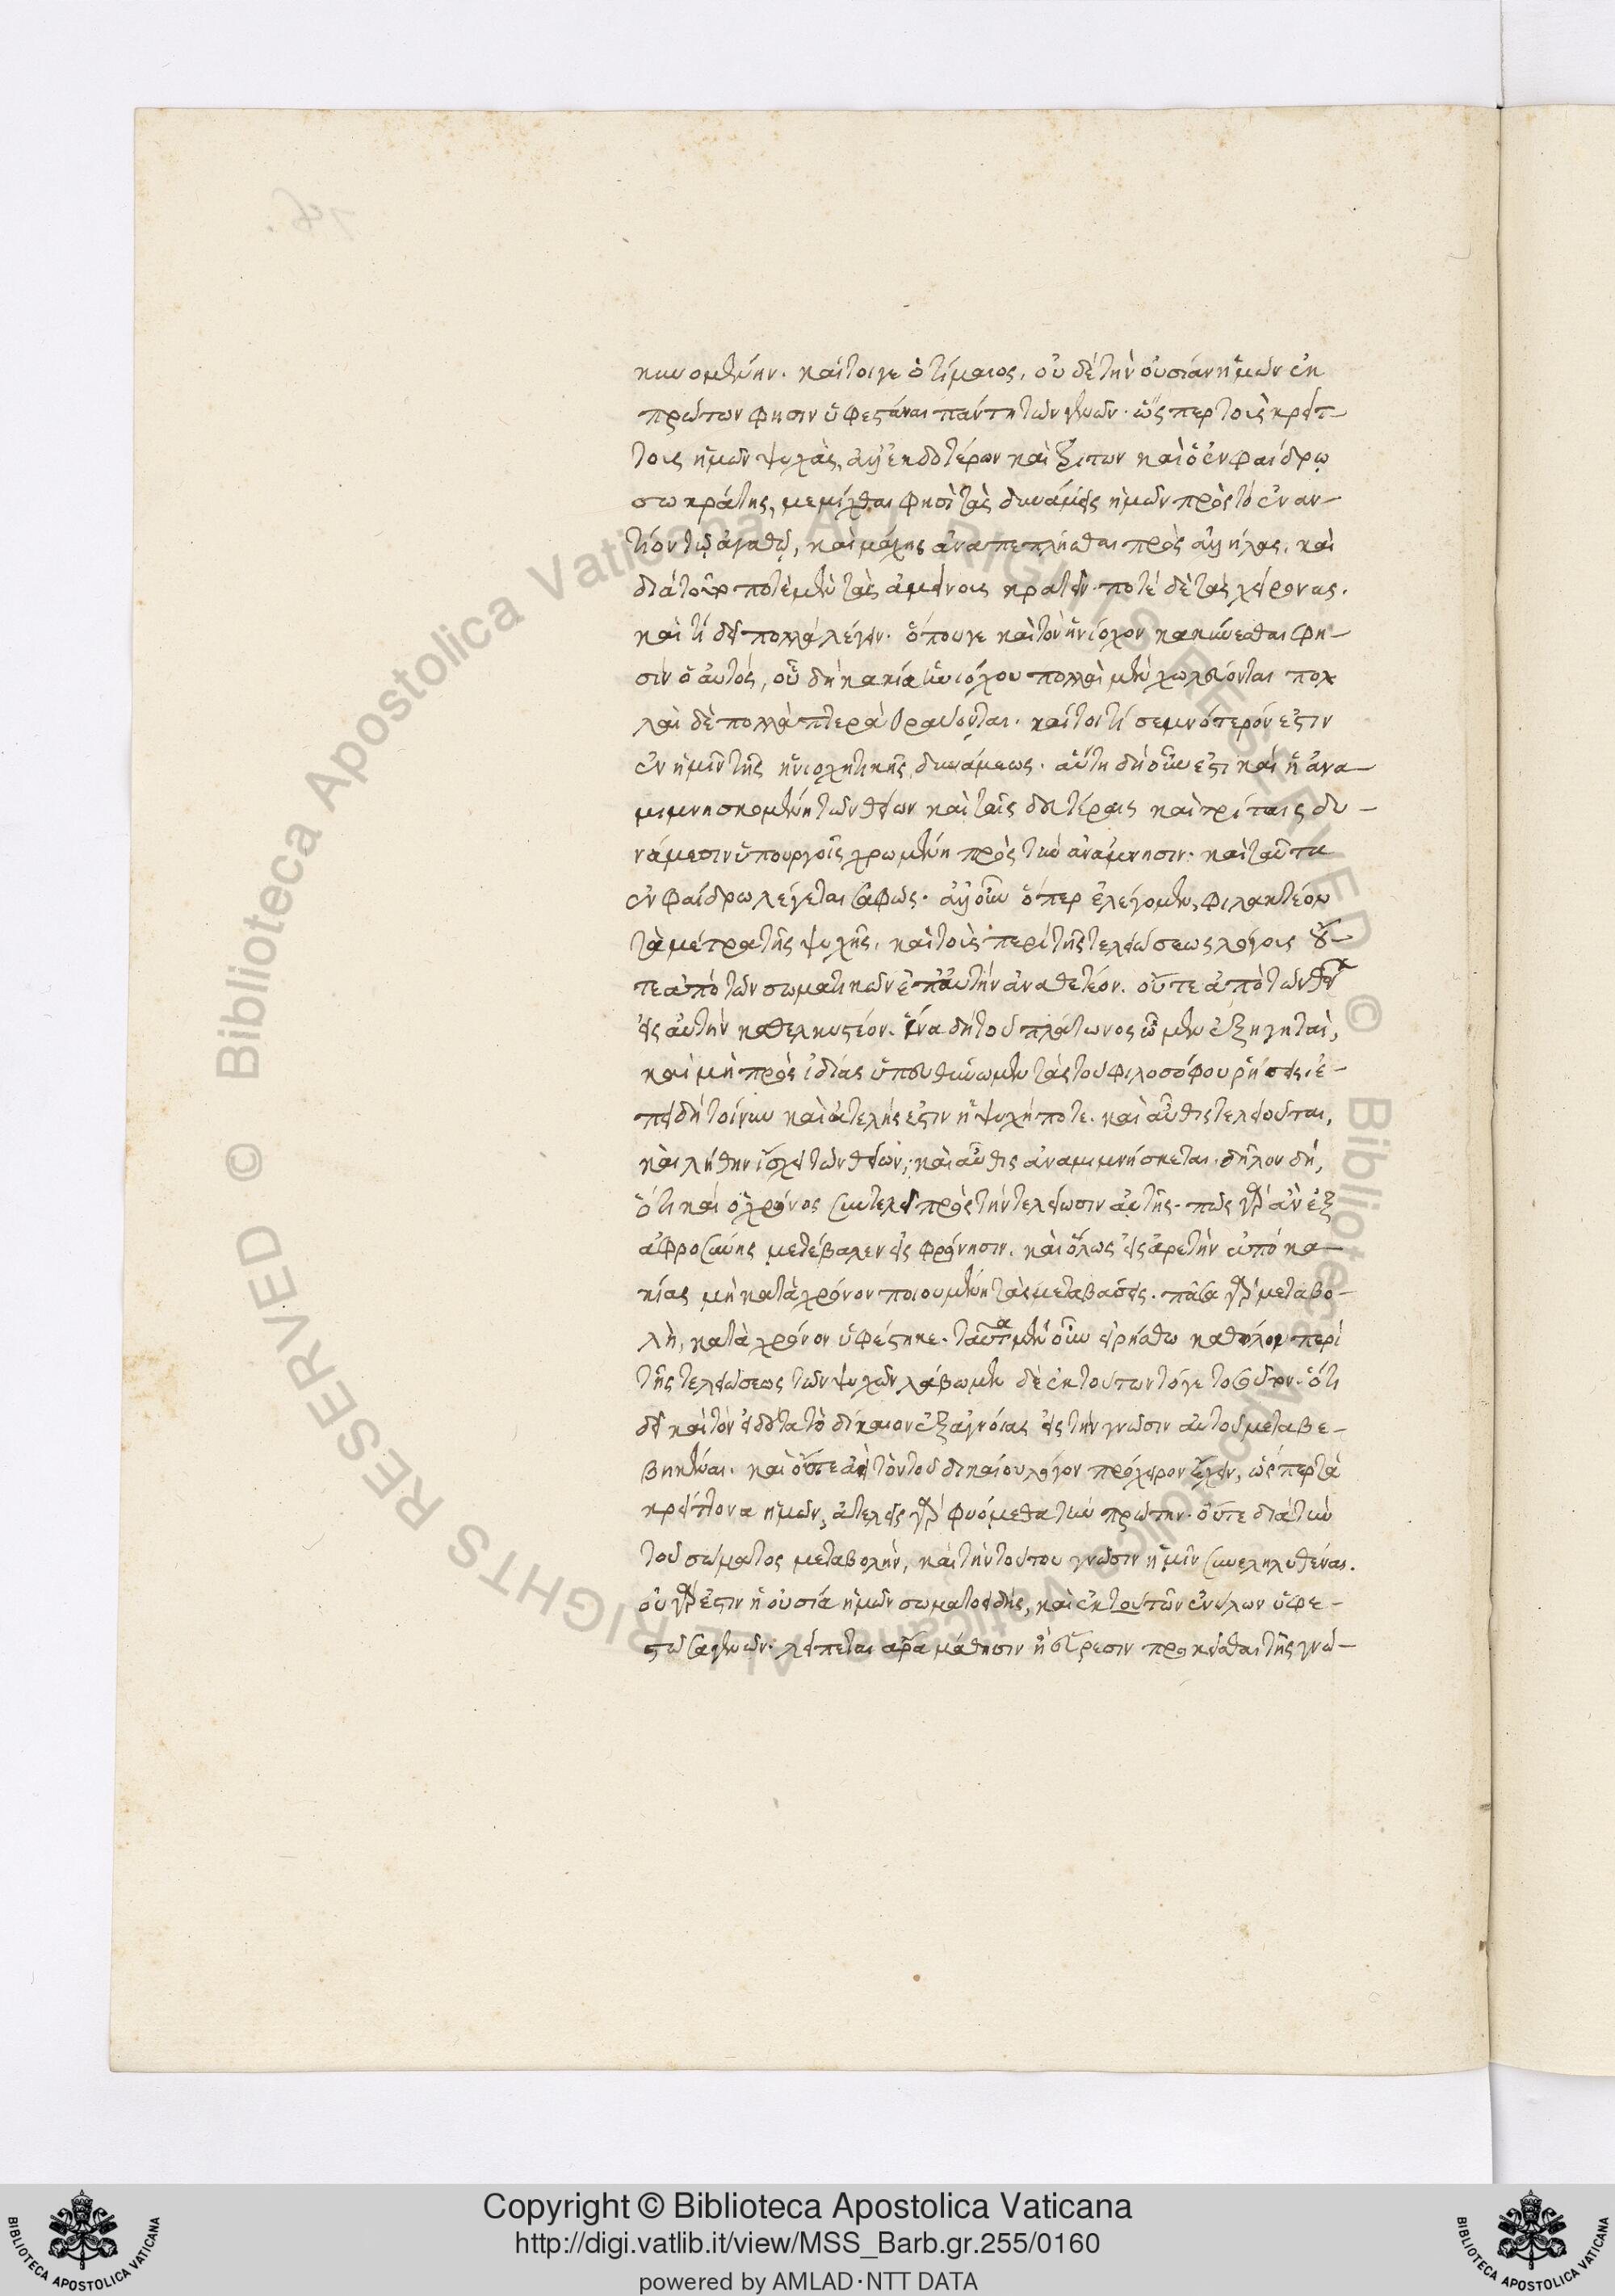 κινουμένην. καίτοιγε ὁ τίμαιος, οὐδὲ τὴν οὐσίαν ἡμῶν ἐκ
πρώτων φησιν ὑφεστάναι πάντῃ τῶν γενῶν. ὥσπερ τοῖς κρείτ-
τοις ἡμῶν ψυχὰς, ἀλλ' ἐκ δευτέρων καὶ τρίτων καὶ ὁ ἐν φαίδρῳ
σωκράτης, μεμίχθαι φησὶ τὰς δυνάμεις ἡμῶν πρὸς τὸ ἐναν-
τίον τῷ ἀγαθῷ, καὶ μάχης ἀναπεπλῆσθαι πρὸς ἀλλήλας, καὶ
διὰ τοῦτο ποτὲ μὲν τὰς ἀμείνους κρατεῖν. ποτὲ δὲ τὰς χείρονας.
καὶ τί δεῖ πολλὰ λέγειν. ὅπουγε καὶ τὸν ἡνίοχον κακύνεσθαι φη-
σὶν ὁ αὐτός, οὗ δὴ κακίᾳ ἡνιόχου πολλαὶ μὲν χωλεύονται πολ
λαὶ δὲ πολλὰ πτερὰ θραύονται. καίτοι τί σεμνότερόν ἐστιν
ἐν ἡμῖν τῆς ἡνιοχητικῆς δυνάμεως. αὕτη δὴ οὖν ἐστι καὶ ἡ ἀνα-
μιμνησκομένη τῶν θείων καὶ ταῖς δευτέραις καὶ τρίταις δυ-
νάμεσιν ὑπουργοῖς χρωμένη πρὸς τὴν ἀνάμνησιν. καὶ ταῦτα
ἐν φαίδρω λέγεται σαφῶς. ἀλλ' οὖν ὅπερ ἐλέγομεν, φιλακτέον
τὰ μέτρα τῆς ψυχῆς, καὶ τοὺς περὶ τῆς τελειώσεως λόγους οὔ-
τε ἀπὸ τῶν σωματικῶν ἐπ' αὐτὴν ἀναθετέον. οὔτε ἀπὸ τῶν θείων
εἰς αὐτὴν καθελκυστέον. ἵνα δὴ τοῦ πλάτωνος ὦμεν ἐξηγηταὶ,
καὶ μὴ πρὸς ἰδίας ὑπευθύνωμεν τὰς τοῦ φιλοσόφου ῥήσεις· ἐ-
πειδὴ τοίνυν καὶ ἀτελής ἐστιν ἡ ψυχή ποτε. καὶ αὖθις τελειοῦται,
καὶ λήθην ἴσχει τῶν θείων, καὶ αὖθις ἀναμιμνήσκεται. δῆλον δὴ,
ὅτι καὶ ὁ χρόνος συντελεῖ πρὸς τὴν τελείωσιν αὐτῆς. πῶς γὰρ ἂν ἐξ
ἀφροσύνης μετέβαλεν εἰς φρόνησιν, καὶ ὅλως εἰς ἀρετὴν ἀπὸ κα-
κίας μὴ κατὰ χρόνον ποιουμένη τὰς μεταβάσεις. πᾶσα γὰρ μεταβο-
λὴ, κατὰ χρόνον ὑφέστηκε. ταῦτα μὲν οὖν εἰρήσθω καθόλου περὶ
τῆς τελειώσεως τῶν ψυχῶν λάβωμεν δὲ ἐκ τούτων τόγε τοσοῦτον. ὅτι
δεῖ καὶ τὸν εἰδότα τὸ δίκαιον ἐξ ἀγνοίας εἰς τὴν γνῶσιν αὐτοῦ μεταβε-
βηκέναι. καὶ οὔτε ἀεὶ τὸν τοῦ δικαίου λόγον πρόχειρον ἔχειν, ὥσπερ τὰ
κρείττονα ἡμῶν, ἀτελεῖς γὰρ φυόμεθα τὴν πρώτην. οὔτε διὰ τὴν
τοῦ σώματος μεταβολὴν, καὶ τὴν τούτου γνῶσιν ἡμῖν συνεληλυθέναι.
οὐ γὰρ ἐστιν ἡ οὐσία ἡμῶν σωματοειδής, καὶ ἐκ τούτων ἐνύλων ὑφε-
στῶσα γενῶν. λείπεται ἄρα μάθησιν ἢ εὕρεσιν προκεῖσθαι τῆς γνώ-
Copyright © Biblioteca Apostolica Vaticana
http://digi.vatlib.it/view/MSS_Barb.gr.255/0160
powered by AMLAD·NTT DATA
BIBLIOTECA APOSTOLICA VATICANA
BIBLIOTECA APOSTOLICA VATICANA
© Biblioteca Apostolica Vaticana ALL RIGHTS RESERVED
© Biblioteca Apostolica Vaticana ALL RIGHTS RESERVED